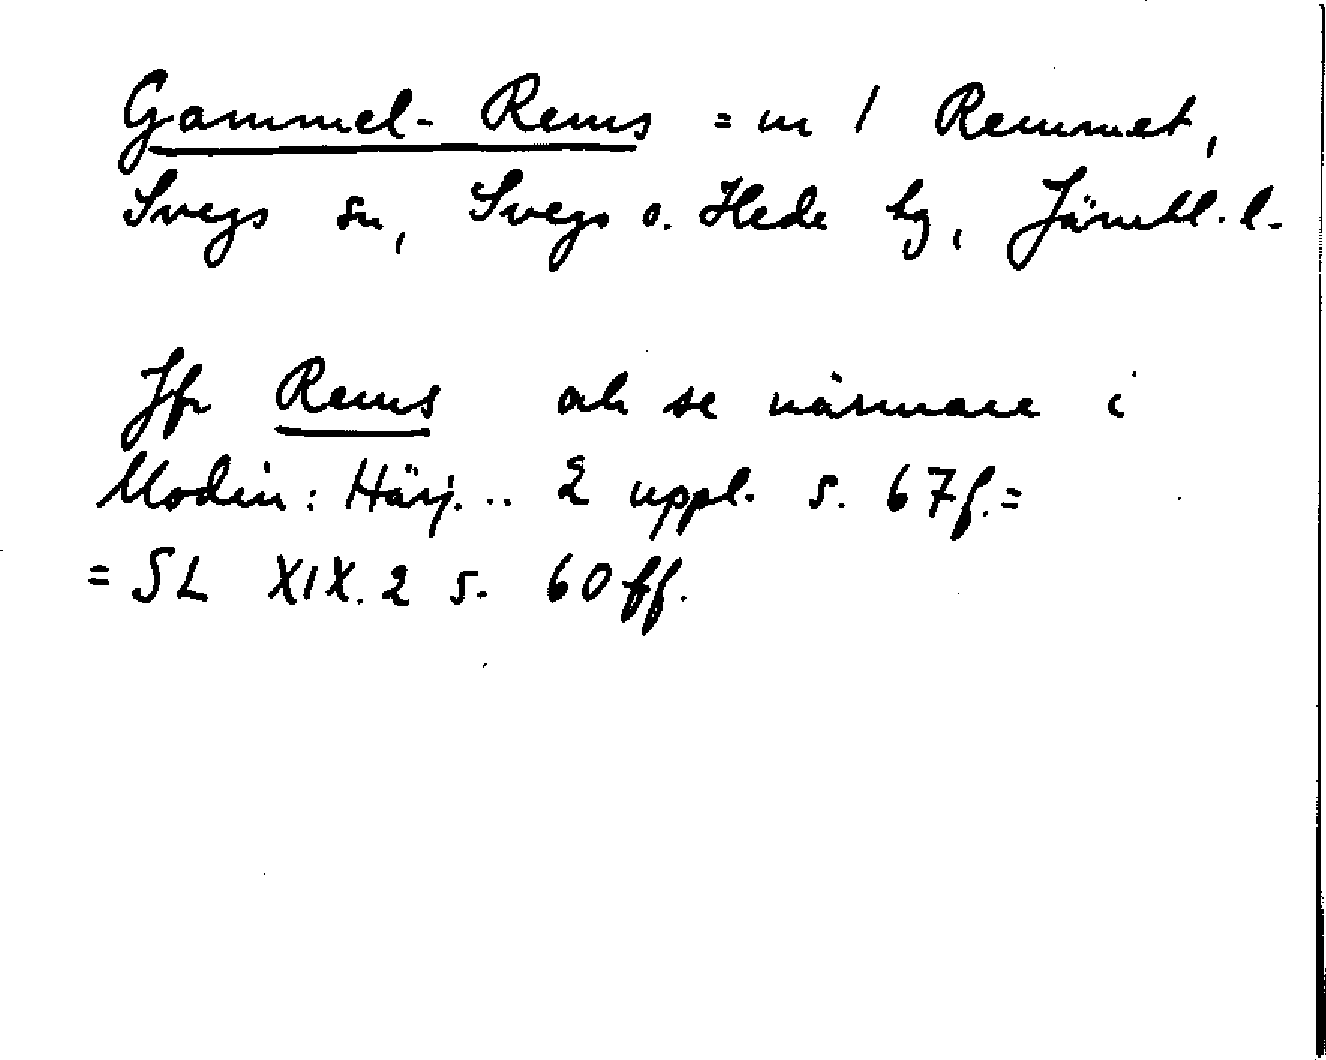 Gammel-Rems = nr 1 Remmet,
Svegs sn, Svegs o. Hede hg, Jämtl. l.
Jfr Rems och se närmare i
Modin: Härj... 2 uppl. s. 67f. =
= SL XIX.2 s. 60 ff.